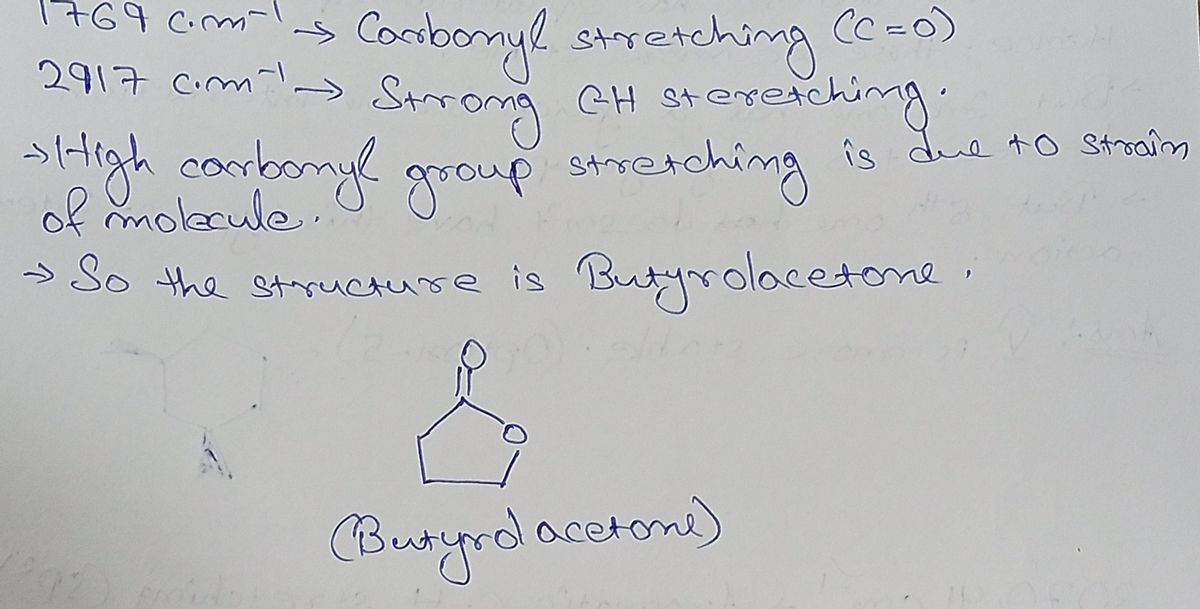 1769 c.m⁻¹ → Carbonyl stretching (C=O)
2917 c.m⁻¹ → Strong C-H steretching.
→ High carbonyl group stretching is due to strain
of molecule.
→ So the structure is Butyrolacetone.
O
O
(Butyrolacetone)